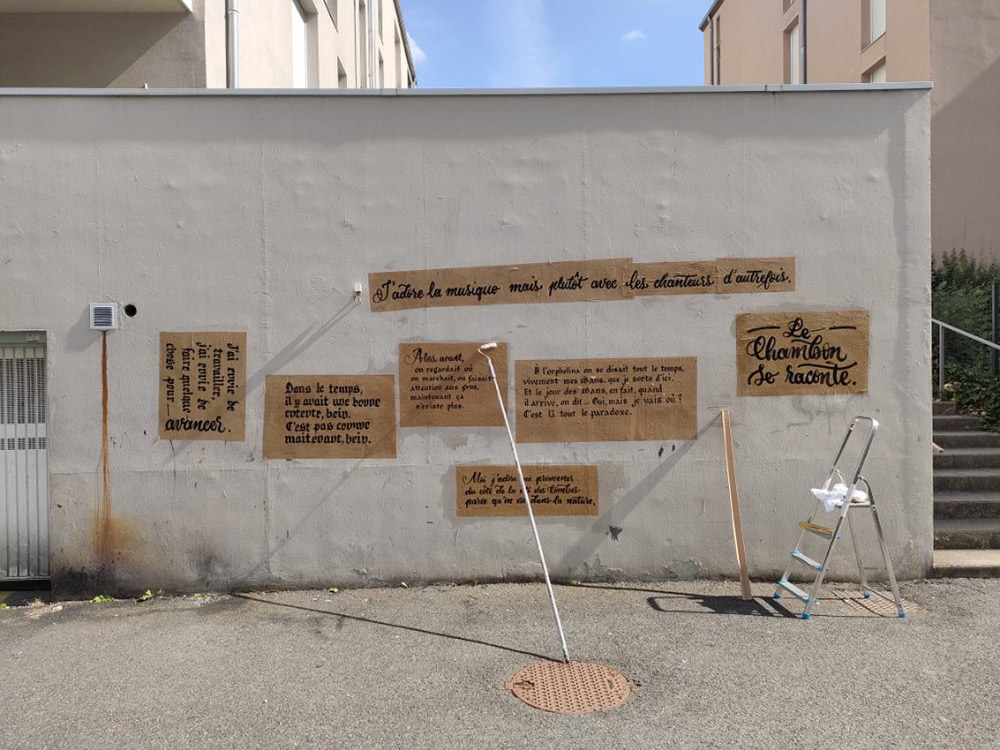 J'adore la musique mais plutôt avec les chanteurs d'autrefois.
Le
Chambon
se raconte.
J'ai envie de
travailler,
j'ai envie de
faire quelque
chose pour
avancer.
Dans le temps,
il y avait une bonne
entente, hein.
C'est pas comme
maintenant, hein.
Alors, avant,
on regardait où
on marchait, on faisait
attention aux gens,
maintenant ça
n'existe plus.
À l'orphelina on se disait tout le temps,
vivement mes 18ans, que je sorte d'ici.
Et le jour des 18ans, en fait, quand
il arrive, on dit... Oui, mais je vais où ?
C'est là tout le paradoxe.
Moi j'adore me promener
du côté de la des
parce qu'on est dans la nature.